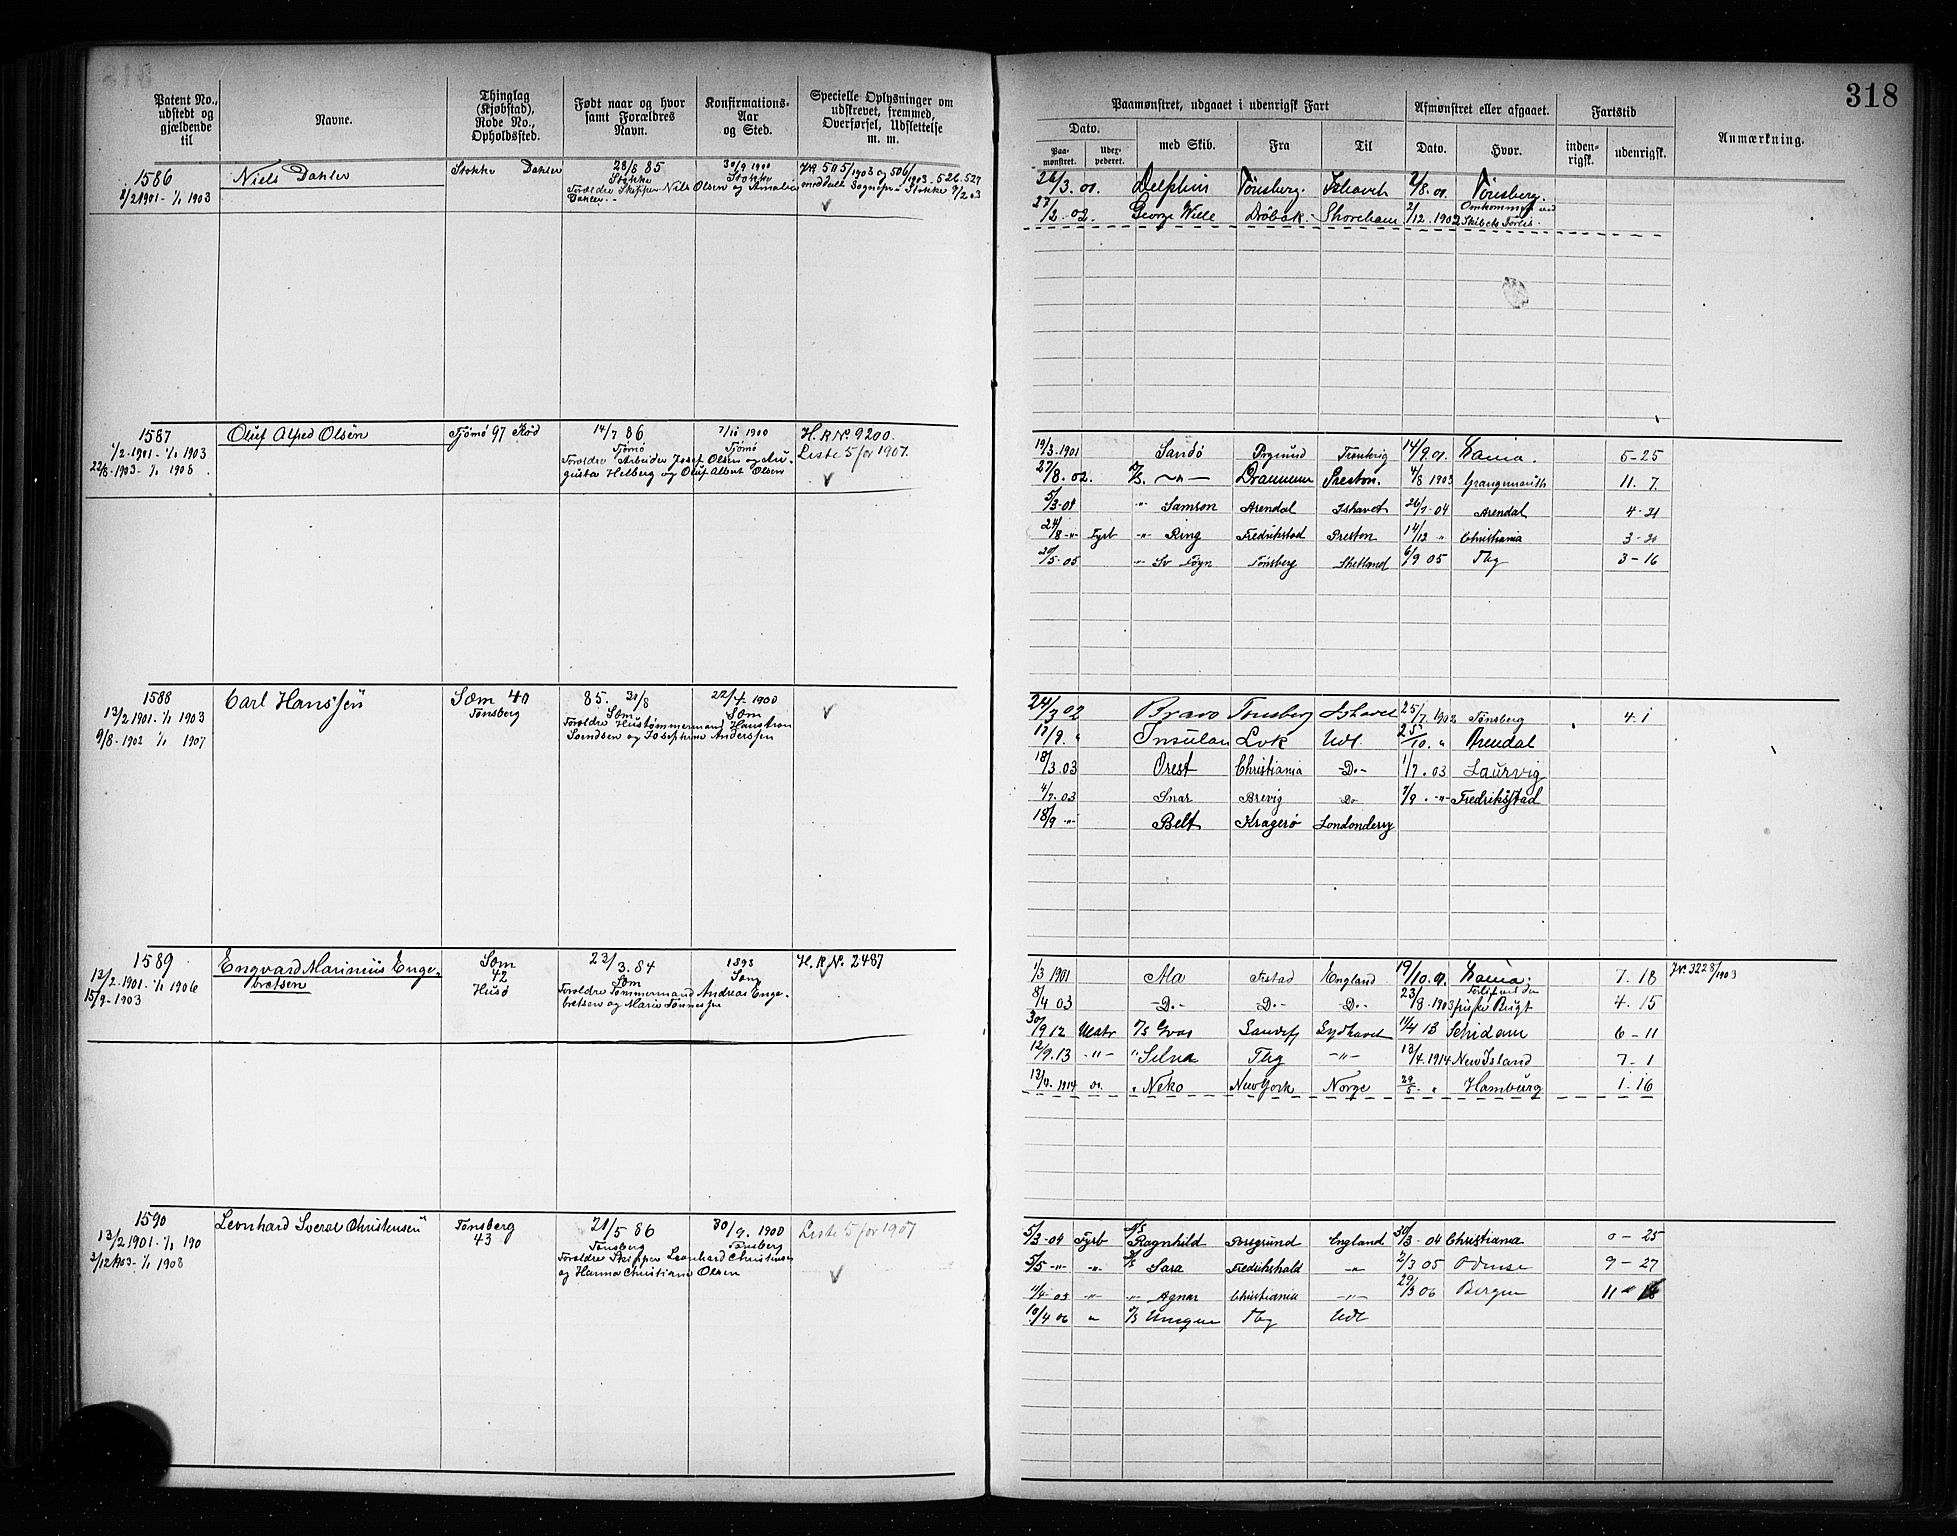 318
Patent No., udstedt og gjældende til
Navne.
Thinglag (Kjøbstad), Rode No., Opholdssted.
Født naar og hvor samt Forældres Navn.
Konfirmations- Aar og Sted.
Specielle Oplysninger om udskrevet, fremmed, Overførsel, Udslettelse m. m.
Paamønstret, udgaaet i udenrigsk Fart
Afmønstret eller afgaaet.
Fartstid
Anmærkning.
Dato.
Paa- mønstret.
Uder- pederet.
med Skib.
Fra
Til
Dato.
Hvor.
inden- rigsk.
udenrigsk.
1586 Niels Dahler Stokke Dahler 28/8 85 30/9 1900
Stokke Stokke
Forældre Skipper Niels Olsen og Amalie
Dahler.
1/2 1901 - 1/1 1903
26/3. 01. Delphin Tönsberg. Ishavet 2/8. 01. Tönsberg.
27/2. 02. George Wiele Dröbak. Shoreham 2/12. 1902 Omkommet ved
Skibets Forlis.
1587 Oluf Alfred Olsen Tjömö 97 Röd 14/7 86 7/10 1900 H.R.Nº. 9200.
1/2 - 1901 - 1/1 1903 Tjömö Tjömö Liste 5 for 1907.
22/8 - 1903 - 1/1 1908 Forældre Arbeider Josef Olsen og Au-
gusta Helberg og Oluf Albert Olsen
19/3. 1901 Sandö Prgrund Frankrig 14/9. 01. Xania. 5-25
27/8. 02. Drammen Preston. 4/8 1903 Grangemouth 11. 7.
5/3-04 " Samson Arendal Ishavet 26/7-04 Arendal 4-21
24/8 -"- Fyrb -"- Ring Fredrikstad Preston 14/12 " Christiania 3-20
20/5-05 -"- Sv Föyn Tönsberg Shetland 6/9 05 Tbg 3-16
1588 Carl Hanssen Sæm 40 85. 31/8 22/4-1900
13/2 1901 - 1/1 1903 Tönsberg Sæm Sæm
9/8 - 1902 1/1 1907 Forældre Hustømmermand Hans
Svendsen og Josephine Anderssen
24/3 02 Bravo Tönsberg Ishavet 25/7. 1902 Tönsberg 4. 1
17/9. " Insulan Lvk Udl. 25/10. " Arendal
18/3. 03 Orest Christiania -D.- 1/7. 03 Laurvig
4/7. 03 Snar Brevig Do 7/9. -"- Fredrikstad
18/9 -"- Belt Kragerø Londonderry
1589 Engvard Marinius Enge- Sæm 23/3. 84 1898 H.R.Nº. 2487
bretsen 42 Sæm Sæm
13/2 - 1901 - 1/1 1906 Husö Forældre Tømmermand Andreas Enge-
15/9 - 1903 bretsen og Marie Tønnessen
1/3 1901 Ala Frstad England 19/10. 01. Xania. 7. 18 Jv. 3228/1903
8/4 03 -D.- -D.- -D.- 23/8. 1903 4. 15
30/9 12 Sandefj Sydhavet 11/4 13 Schidam 6-11
12/9. 13 -"- " Selva Tbg -"- 13/4. 1914 New Island 7-1
" Neko New York Norge 29/5. " Hamburg 1. 16
1590 Leonhard Sveræ Christensen Tønsberg 21/5 86 30/9. 1900 Liste 5 for 1907
13/2 1901 - 1/1 190 43 Tønsberg Tønsberg
3/12 1903 - 1/1 1908 Forældre Skipper Leonhard Christensen
og Hanna Christiane Olsen
5/3-04 Fyrb Ragnhild Porsgrund England 30/3-04 Christiania 0-25
5/5 -"- -"- Sara Fredrikshald -"- 2/3 05 Odense 9-27
-"- -"- Agnar Christiania -"- 29/3 06 Bergen
10/4 06 " Unique Tbg Udl